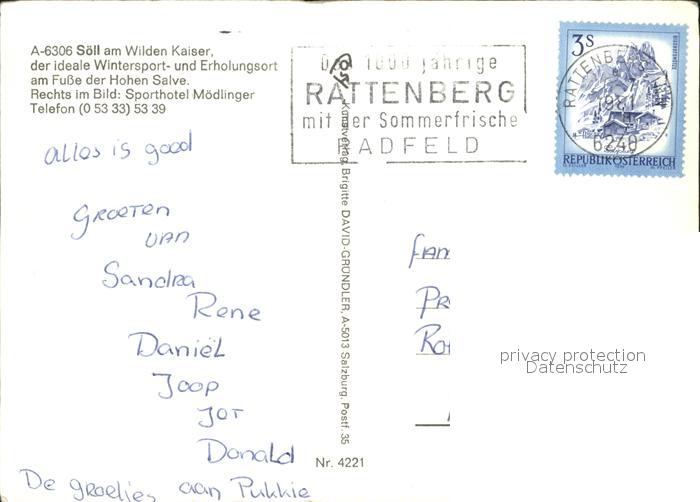 A-6306 Söll am Wilden Kaiser,
der ideale Wintersport- und Erholungsort
am Fuße der Hohen Salve.
Rechts im Bild: Sporthotel Mödlinger
Telefon (0 53 33) 53 39
alles is good
Groeten
van
Sandra
Rene
Daniël
Joop
Jot
Donald
De groetjes aan Pukkie
1000 jährige
RATTENBERG
mit der Sommerfrische
RADFELD
Kunstverlag Brigitte DAVID-GRÜNDLER, A-5013 Salzburg, Postf. 35
Nr. 4221
3S
RATTENBERG
6240
REPUBLIK ÖSTERREICH
Fam
Pr
Ro
privacy protection
Datenschutz